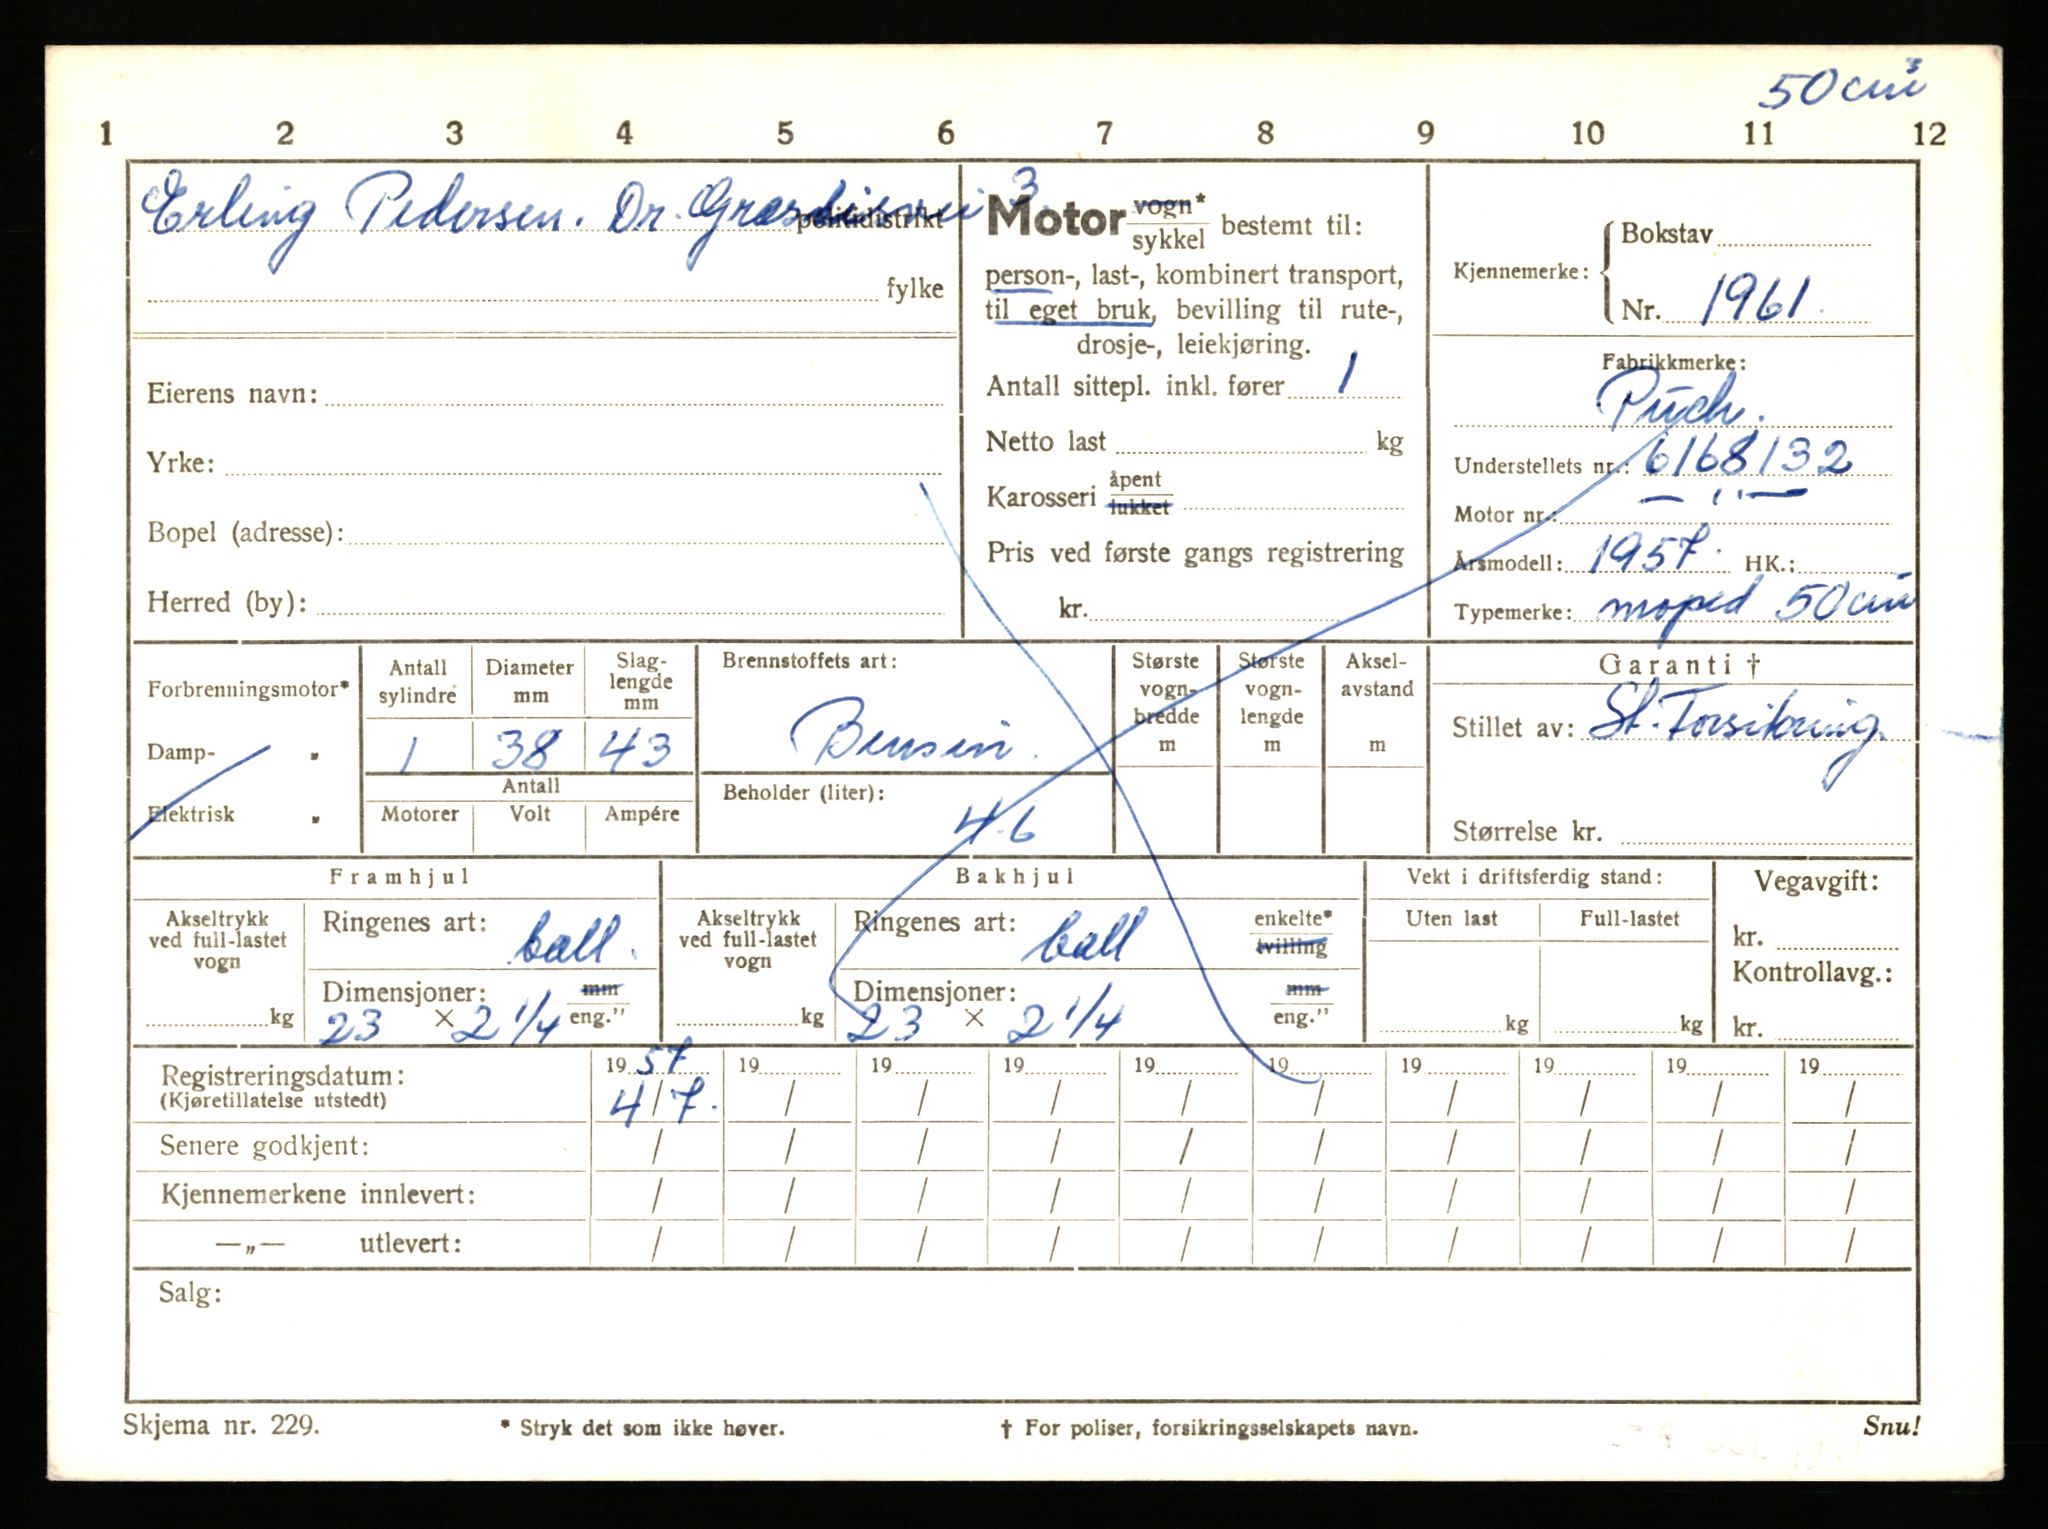 50 cm³
1 2 3 4 5 6 7 8 9 10 11 12
Erling Pedersen. Dr. 3
politidistrikt
fylke
Eierens navn:
Yrke:
Bopel (adresse):
Herred (by):
Motor vogn* sykkel bestemt til:
person-, last-, kombinert transport,
til eget bruk, bevilling til rute-,
drosje-, leiekjøring.
Antall sittepl. inkl. fører 1
Netto last kg
Karosseri åpent lukket
Pris ved første gangs registrering
kr.
Kjennemerke: Bokstav
Nr. 1961.
Fabrikkmerke:
Puch.
Understellets nr.: 6168132
Motor nr.: — '' —
Årsmodell: 1957. HK.:
Typemerke: moped 50 cm
Forbrenningsmotor*
Damp- "
Elektrisk "
Antall sylindre
Diameter mm
Slag-lengde mm
1 38 43
Antall
Motorer Volt Ampére
Brennstoffets art:
Bensin.
Beholder (liter):
4.6
Største vogn-bredde m
Største vogn-lengde m
Aksel-avstand m
Garanti †
Stillet av: St. Forsikring.
Størrelse kr.
Framhjul
Akseltrykk ved full-lastet vogn
kg
Ringenes art: ball.
Dimensjoner: mm
23 × 2 1/4 eng."
Bakhjul
Akseltrykk ved full-lastet vogn
kg
Ringenes art: ball enkelte* tvilling
Dimensjoner: mm
23 × 2 1/4 eng."
Vekt i driftsferdig stand:
Uten last Full-lastet
kg kg
Vegavgift:
kr.
Kontrollavg.:
kr.
Registreringsdatum: 19 57 19 19 19 19 19 19 19 19 19
(Kjøretillatelse utstedt) 4/7. / / / / / / / / /
Senere godkjent: / / / / / / / / / /
Kjennemerkene innlevert: / / / / / / / / / /
—„— utlevert: / / / / / / / / / /
Salg:
Skjema nr. 229. * Stryk det som ikke høver. † For poliser, forsikringsselskapets navn. Snu!